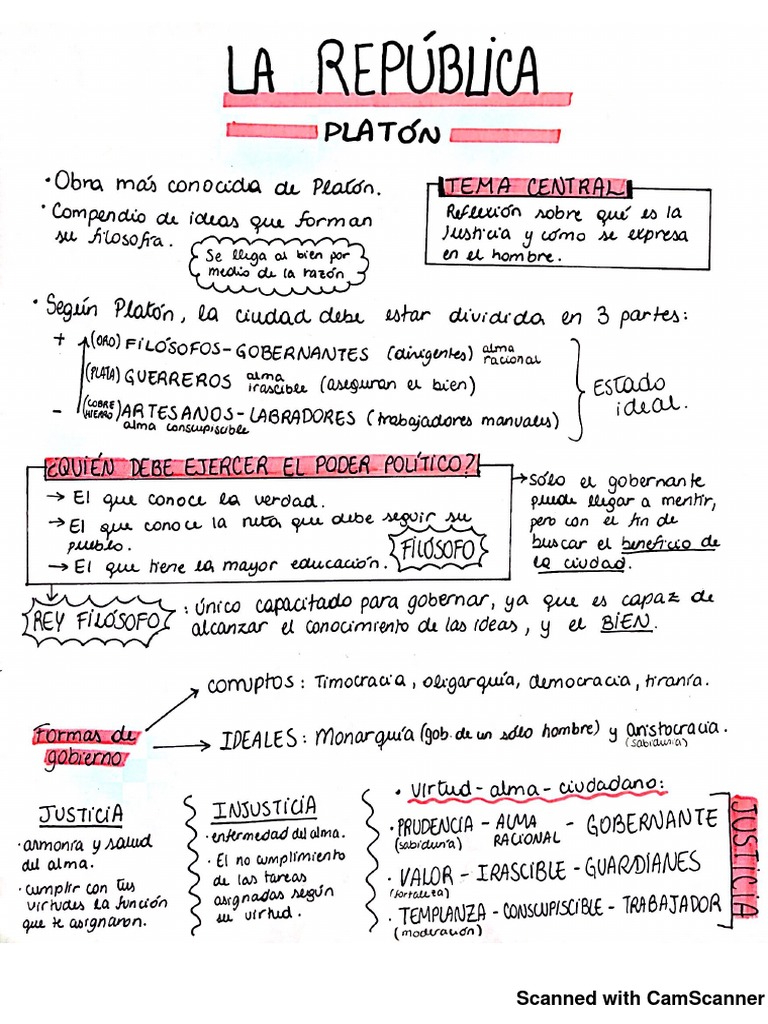 LA REPÚBLICA
PLATÓN
• Obra más conocida de Platón.
• Compendio de ideas que forman
su filosofía.
Se llega al bien por
medio de la razón
TEMA CENTRAL
Reflexión sobre qué es la
Justicia y cómo se expresa
en el hombre.
• Según Platón, la ciudad debe estar dividida en 3 partes:
+ (ORO) FILÓSOFOS - GOBERNANTES (dirigentes) alma racional
(PLATA) GUERREROS alma irascible (aseguran el bien)
- (COBRE HIERRO) ARTESANOS - LABRADORES (trabajadores manuales)
alma conscupiscible
ESTADO
ideal.
¿QUIÉN DEBE EJERCER EL PODER POLÍTICO?
→ El que conoce la verdad.
→ El que conoce la ruta que debe seguir su
pueblo.
→ El que tiene la mayor educación.
FILÓSOFO
→ sólo el gobernante
puede llegar a mentir,
pero con el fin de
buscar el beneficio de
la ciudad.
REY FILÓSOFO : único capacitado para gobernar, ya que es capaz de
alcanzar el conocimiento de las ideas, y el BIEN.
Formas de
gobierno
corruptos: Timocracia, oligarquía, democracia, tiranía.
IDEALES: Monarquía (gob. de un sólo hombre) y aristocracia.
(sabiduría)
JUSTICIA
• armonía y salud
del alma.
• cumplir con tus
virtudes la función
que te asignaron.
INJUSTICIA
• enfermedad del alma.
• El no cumplimiento
de las tareas
asignadas según
su virtud.
• virtud - alma - ciudadano:
• PRUDENCIA - ALMA RACIONAL - GOBERNANTE
(sabiduría)
• VALOR - IRASCIBLE - GUARDIANES
(fortaleza)
• TEMPLANZA - CONSCUPISCIBLE - TRABAJADOR
(moderación)
JUSTICIA
Scanned with CamScanner